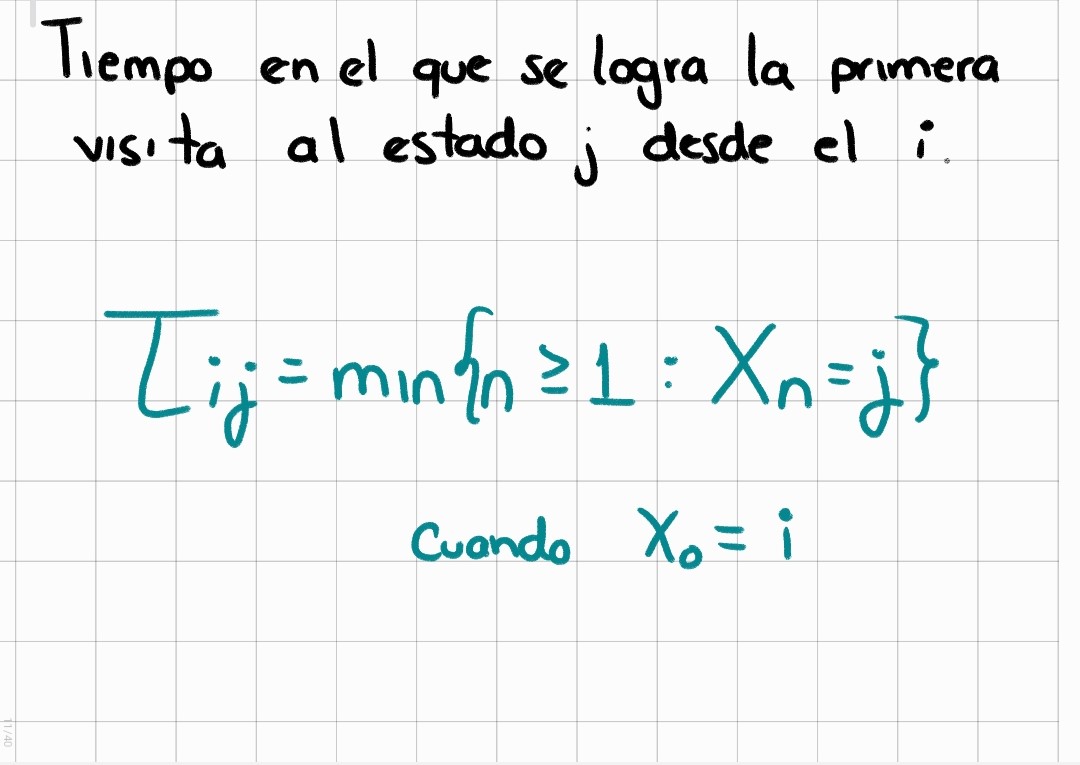 Tiempo en el que se logra la primera
visita al estado j desde el i.
τij = min{n ≥ 1 : Xn = j}
cuando X0 = i
11/40